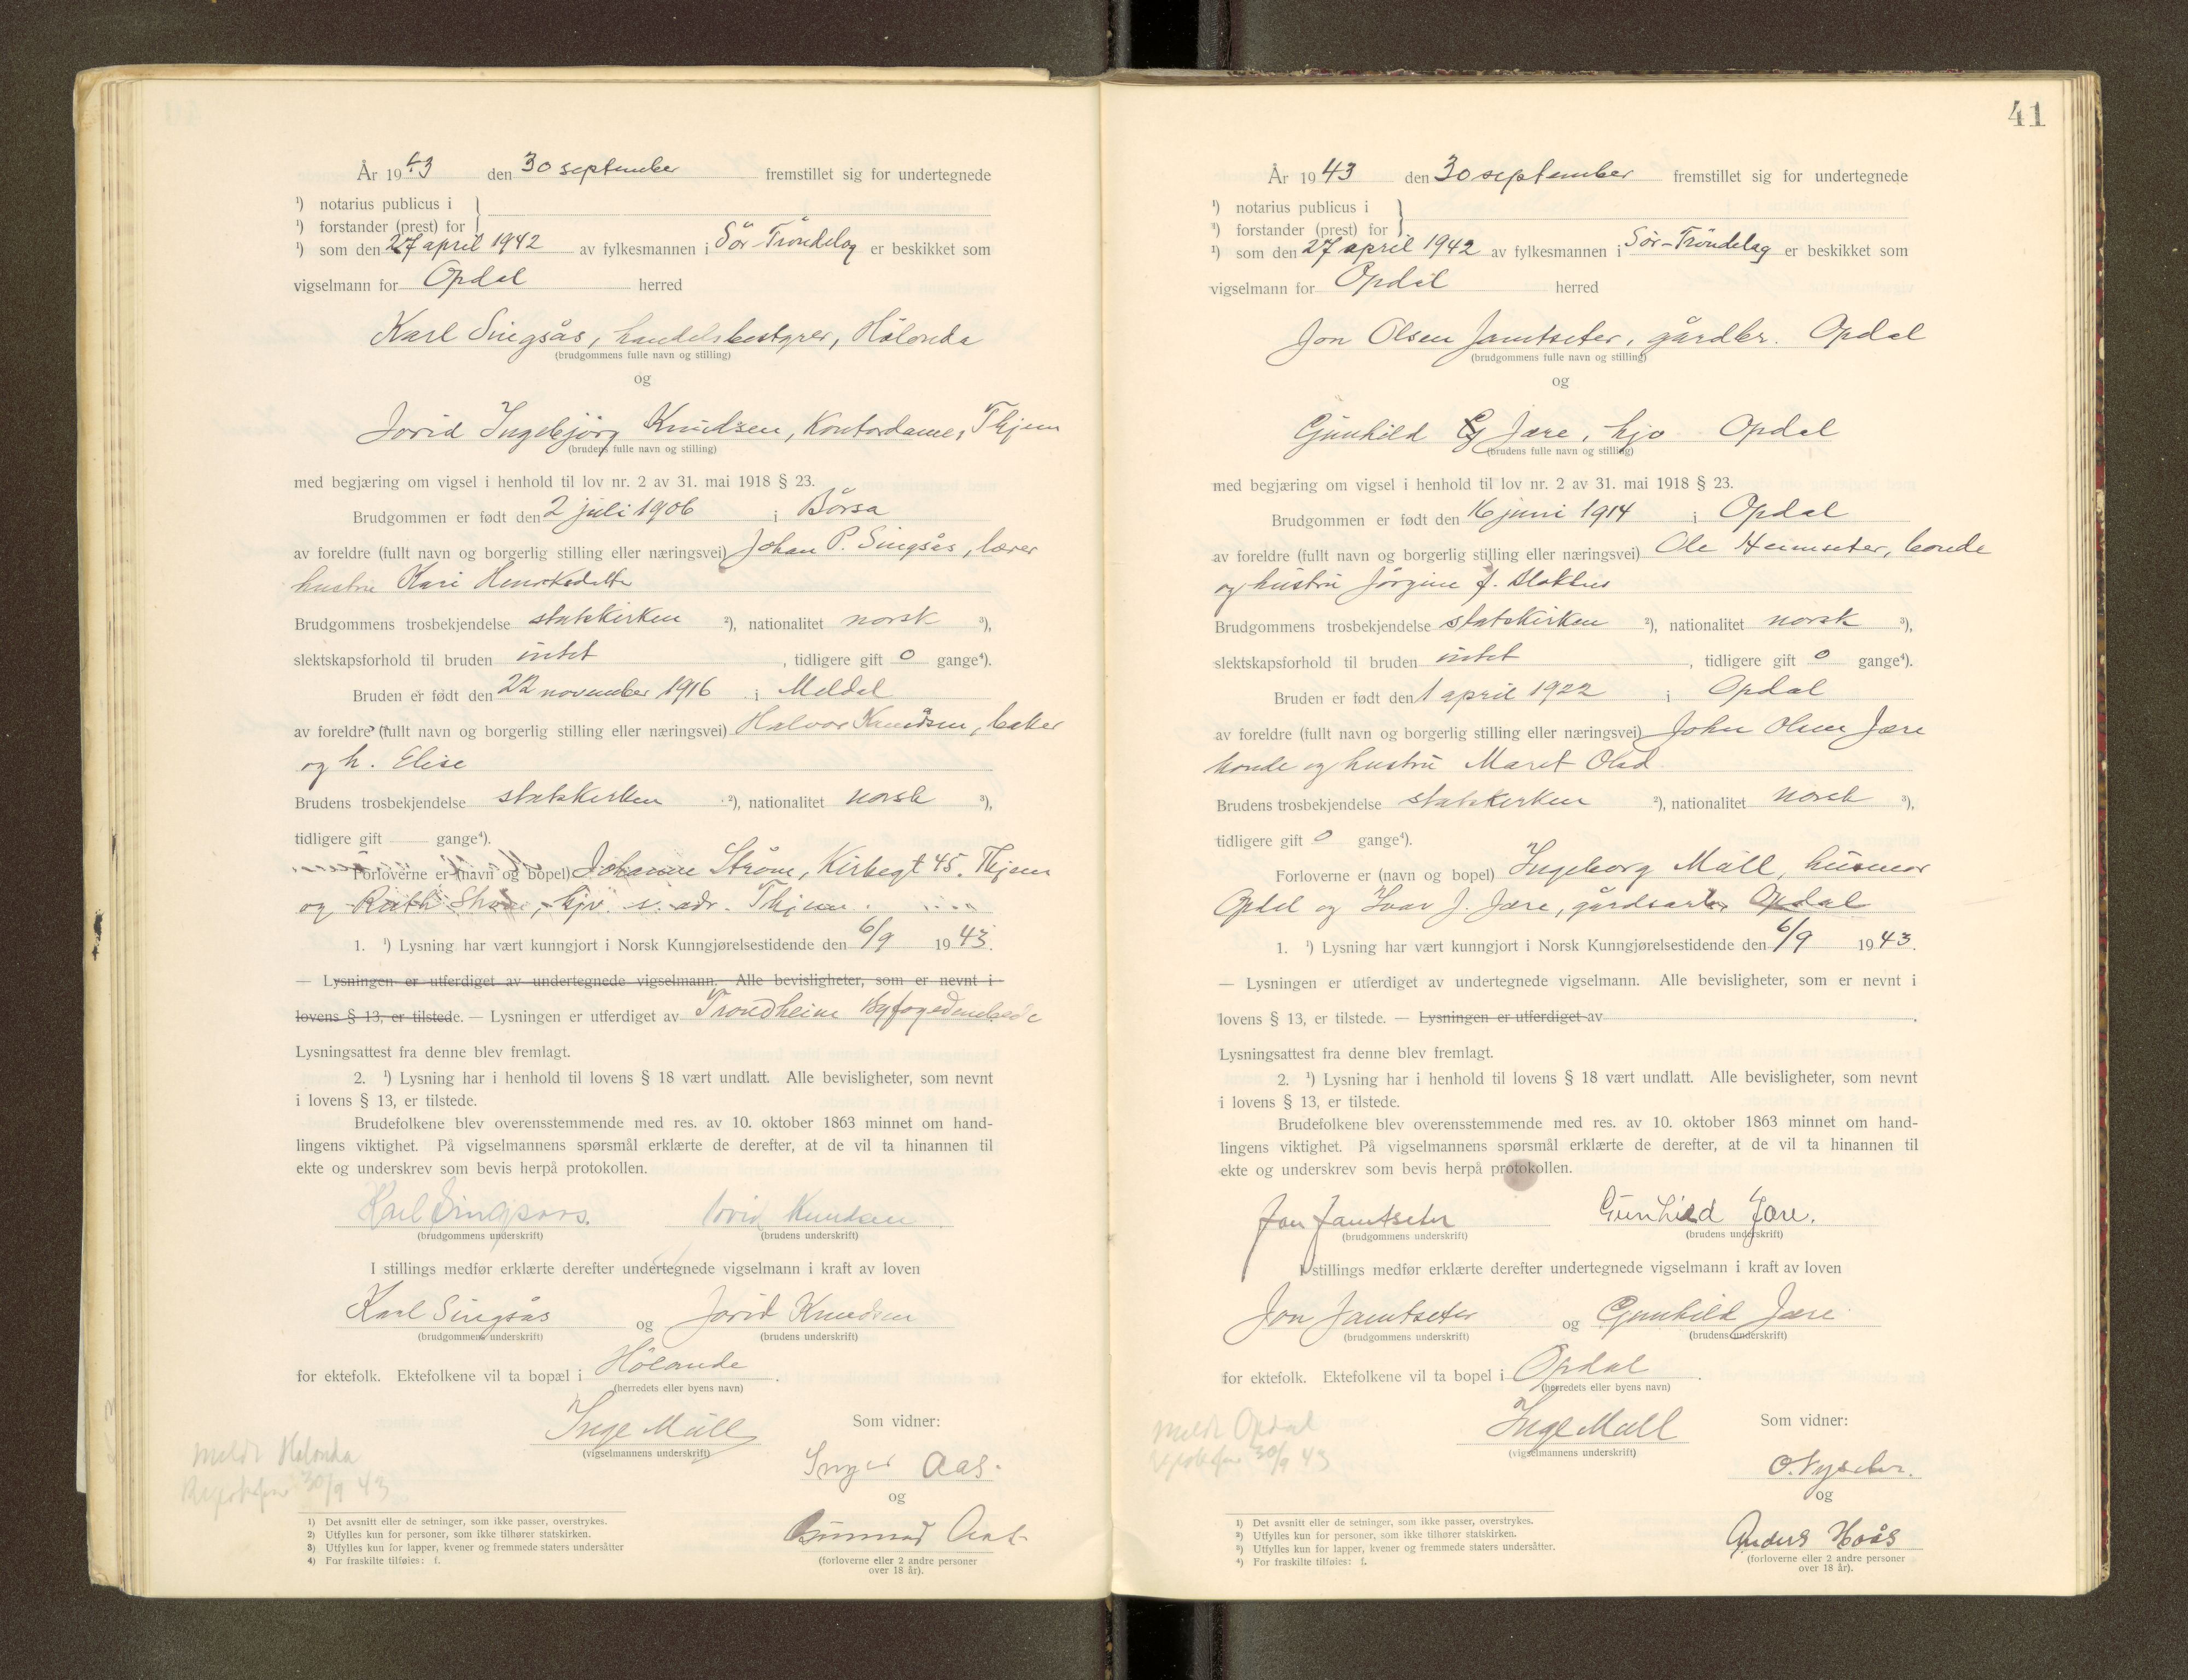 År 1943 den 30 september fremstillet sig for undertegnede
¹) notarius publicus i
¹) forstander (prest) for
¹) som den 27 april 1942 av fylkesmannen i Sör-Tröndelag er beskikket som
vigselmann for Opdal herred
Karl Singsås, handelsbestyrer, Hölonda
(brudgommens fulle navn og stilling)
og
Jorid Ingebjörg Knudsen, Kontordame, Thjem
(brudens fulle navn og stilling)
med begjæring om vigsel i henhold til lov nr. 2 av 31. mai 1918 § 23.
Brudgommen er født den 2 juli 1906 i Börsa
av foreldre (fullt navn og borgerlig stilling eller næringsvei) Johan P. Singsås, lærer
hustru Kari
Brudgommens trosbekjendelse statskirken ²), nationalitet norsk ³),
slektskapsforhold til bruden intet , tidligere gift 0 gange⁴).
Bruden er født den 22 november 1916 i Meldal
av foreldre (fullt navn og borgerlig stilling eller næringsvei) Halvor Knudsen, baker
og h. Elise
Brudens trosbekjendelse statskirken ²), nationalitet norsk ³),
tidligere gift gange⁴).
Forloverne er (navn og bopel) Johanne Ström, Kirkegt 45. Thjem
og Ruth , hjv. s. adr. Thjem.
1. ¹) Lysning har vært kunngjort i Norsk Kunngjørelsestidende den 6/9 1943.
— Lysningen er utferdiget av undertegnede vigselmann. Alle bevisligheter, som er nevnt i
lovens § 13, er tilstede. — Lysningen er utferdiget av Trondheim Byfogedembede
Lysningsattest fra denne blev fremlagt.
2. ¹) Lysning har i henhold til lovens § 18 vært undlatt. Alle bevisligheter, som nevnt
i lovens § 13, er tilstede.
Brudefolkene blev overensstemmende med res. av 10. oktober 1863 minnet om hand-
lingens viktighet. På vigselmannens spørsmål erklærte de derefter, at de vil ta hinannen til
ekte og underskrev som bevis herpå protokollen.
Karl Singsaas. Jorid Knudsen
(brudgommens underskrift) (brudens underskrift)
I stillings medfør erklærte derefter undertegnede vigselmann i kraft av loven
Karl Singsås og Jorid Knudsen
(brudgommens underskrift) (brudens underskrift)
for ektefolk. Ektefolkene vil ta bopæl i Hölonda .
(herredets eller byens navn)
Inge Mäll Som vidner:
(vigselmannens underskrift)
Meldt Hølonda
30/9 43
Inger Aas.
og
Gunnar Aas
(forloverne eller 2 andre personer
over 18 år).
1) Det avsnitt eller de setninger, som ikke passer, overstrykes.
2) Utfylles kun for personer, som ikke tilhører statskirken.
3) Utfylles kun for lapper, kvener og fremmede staters undersåtter
4) For fraskilte tilføies: f.
41
År 1943 den 30 september fremstillet sig for undertegnede
¹) notarius publicus i
¹) forstander (prest) for
¹) som den 27 april 1942 av fylkesmannen i Sör-Tröndelag er beskikket som
vigselmann for Opdal herred
Jon Olsen Jamtseter, gårdbr. Opdal
(brudgommens fulle navn og stilling)
og
Gunhild Jære, hjv Opdal
(brudens fulle navn og stilling)
med begjæring om vigsel i henhold til lov nr. 2 av 31. mai 1918 § 23.
Brudgommen er født den 16 juni 1914 i Opdal
av foreldre (fullt navn og borgerlig stilling eller næringsvei) Ole Heimseter, bonde
og hustru Jörgine J.
Brudgommens trosbekjendelse statskirken ²), nationalitet norsk ³),
slektskapsforhold til bruden intet , tidligere gift 0 gange⁴).
Bruden er født den 1 april 1922 i Opdal
av foreldre (fullt navn og borgerlig stilling eller næringsvei) John Olsen Jære
bonde og hustru Maret Olsd
Brudens trosbekjendelse statskirken ²), nationalitet norsk ³),
tidligere gift 0 gange⁴).
Forloverne er (navn og bopel) Ingeborg Mäll, husmor
Opdal og Ivar J. Jære, gårdsarb, Opdal
1. ¹) Lysning har vært kunngjort i Norsk Kunngjørelsestidende den 6/9 1943.
— Lysningen er utferdiget av undertegnede vigselmann. Alle bevisligheter, som er nevnt i
lovens § 13, er tilstede. — Lysningen er utferdiget av .
Lysningsattest fra denne blev fremlagt.
2. ¹) Lysning har i henhold til lovens § 18 vært undlatt. Alle bevisligheter, som nevnt
i lovens § 13, er tilstede.
Brudefolkene blev overensstemmende med res. av 10. oktober 1863 minnet om hand-
lingens viktighet. På vigselmannens spørsmål erklærte de derefter, at de vil ta hinannen til
ekte og underskrev som bevis herpå protokollen.
Jon Jamtseter Gunhild Jære.
(brudgommens underskrift) (brudens underskrift)
I stillings medfør erklærte derefter undertegnede vigselmann i kraft av loven
Jon Jamtseter og Gunhild Jære
(brudgommens underskrift) (brudens underskrift)
for ektefolk. Ektefolkene vil ta bopel i Opdal .
(herredets eller byens navn)
Inge Mäll Som vidner:
(vigselmannens underskrift)
Meldt Opdal
30/9 43
O. Nyseter.
og
Anders Hoås
(forloverne eller 2 andre personer
over 18 år).
1) Det avsnitt eller de setninger, som ikke passer, overstrykes.
2) Utfylles kun for personer, som ikke tilhører statskirken.
3) Utfylles kun for lapper, kvener og fremmede staters undersåtter.
4) For fraskilte tilføies: f.